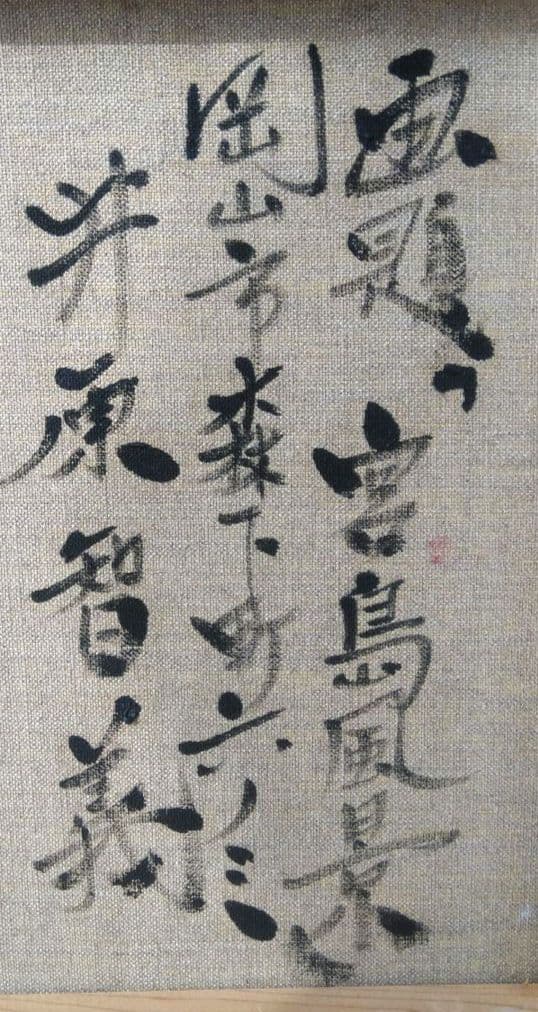 画題「宮島風景」
岡山市森下町六ノ三
井原智義